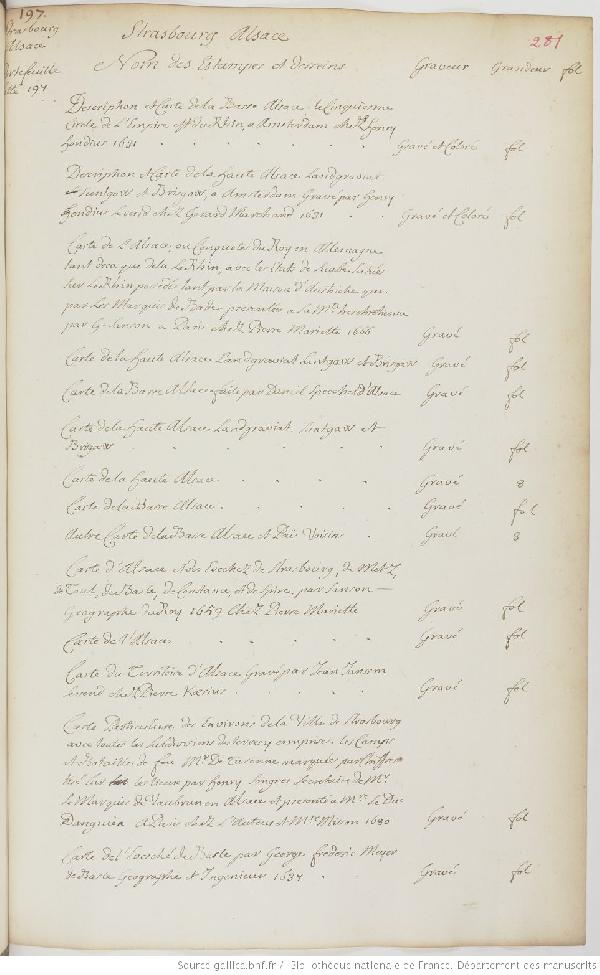 197.
Strasbourg
Alsace
Portefeuille
197
Strasbourg Alsace
281
Nom des Estampes et Desseins Graveur Grandeur fol
Description et Carte de la Basse Alsace le Cinquiesme
Cercle de L'Empire et du Rhin, a Amsterdam chez Henry
Hondius 1631 Gravé et Coloré fol
Description et Carte de la haute Alsace Landgraviat
de Suntgaw et Brisgaw, a Amsterdam Gravé par Henry
Hondius se vend chez Gerard Marchand 1631 Gravé et Coloré fol
Carte de L'Alsace, ou Conquetes du Roy en Allemagne
tant deca que dela Le Rhin, avec les Etats de
sur Le Rhin possedés tant par la Maison d'Austriche que
par Les Marquis de Bade, presentée a sa
par G. Sanson a Paris chez Pierre Mariette 1666 Gravé fol
Carte de la haute Alsace Landgraviat Suntgaw et Brisgaw Gravé fol
Carte de la Basse Alsace faite par Daniel Speckel d'Alsace Gravé fol
Carte de la haute Alsace Landgraviat Suntgaw et
Brisgaw Gravé fol
Carte de la haute Alsace Gravé 8
Carte de la Basse Alsace Gravé fol
Autre Carte de la Basse Alsace et Païs Voisins Gravé 8
Carte d'Alsace et des Evechez de Strasbourg, de Metz,
de Toul, de Basle, de Constance, et de Spire, par Sanson
Geographe du Roy 1659 Chez Pierre Mariette Gravé fol
Carte de l'Alsace Gravé fol
Carte du Territoire d'Alsace Gravé par Jean Janson
se vend chez Pierre Kærius Gravé fol
Carte Particuliere des Environs de la Ville de Strasbourg
avec toutes les du terrein comprises les Camps
et Batailles de feu Mr. De Turenne marquées
sur les lieux par Henry Sengre Secretaire de Mr.
le Marquis de Vaubrun en Alsace et presenté a Mr. le Duc
Danguien A Paris chez L'Auteur et 1680 Gravé fol
Carte de l'Evesché de Basle par George frederic Meyer
de Basle Geographe et Ingenieur Gravé fol
Source gallica.bnf.fr / Bibliothèque nationale de France. Département des manuscrits